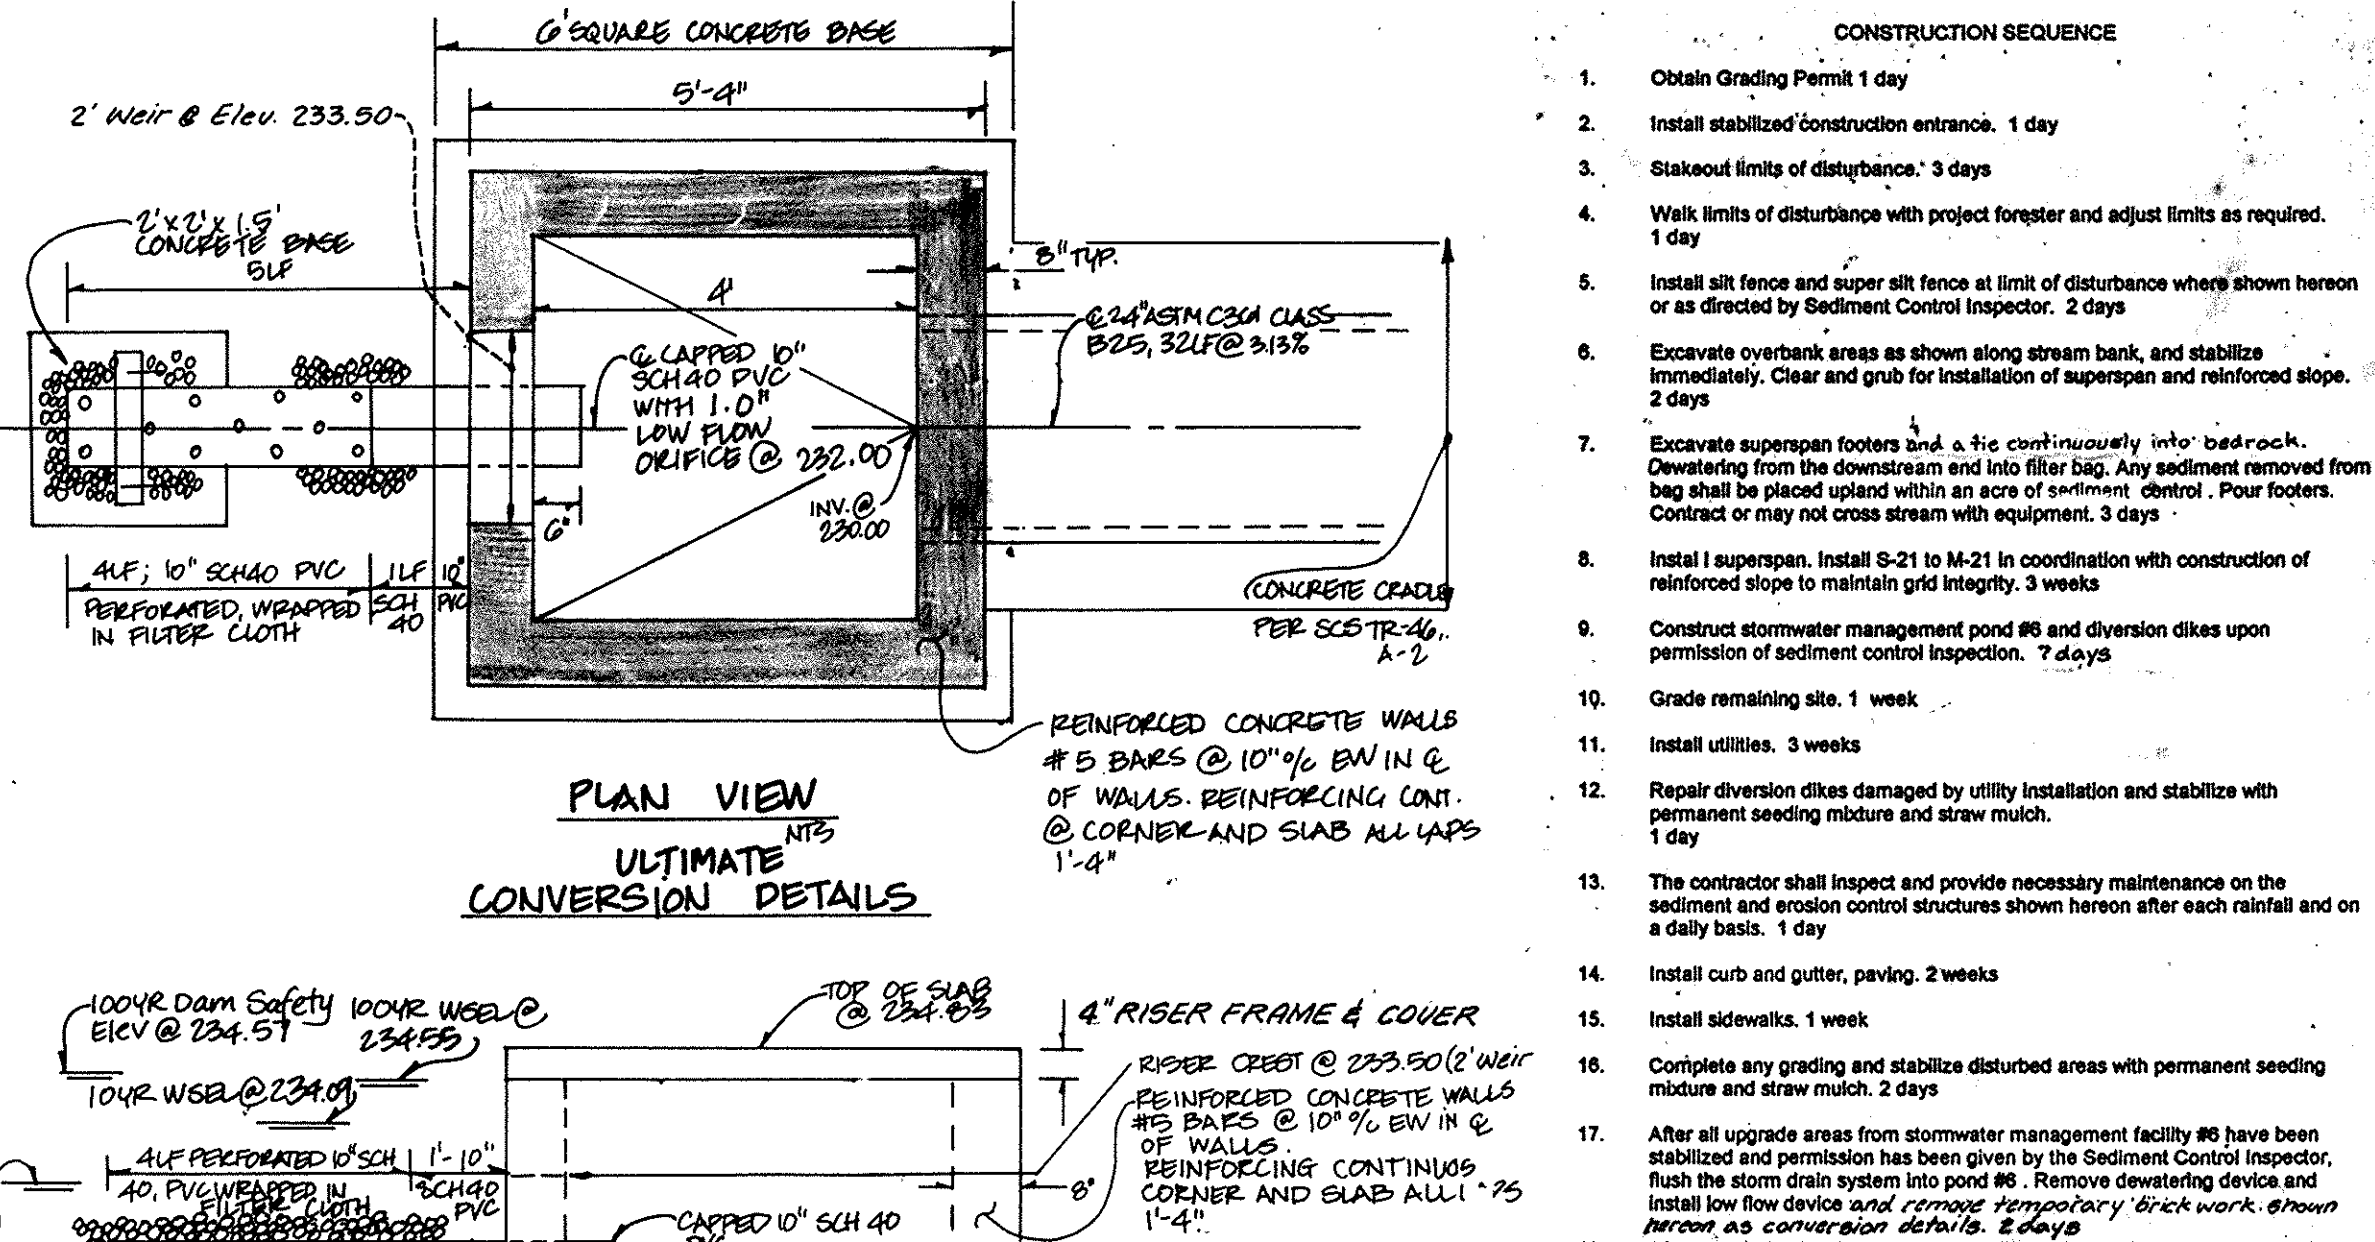 6' SQUARE CONCRETE BASE
5'-4"
2' Weir @ Elev. 233.50
2' x 2' x 1.5'
CONCRETE BASE
5LF
4'
8" TYP.
℄ 24" ASTM C361 CLASS
B25, 32LF @ 3.13%
℄ CAPPED 10"
SCH40 PVC
WITH 1.0"
LOW FLOW
ORIFICE @ 232.00
INV. @
230.00
6"
4LF; 10" SCH40 PVC
PERFORATED, WRAPPED
IN FILTER CLOTH
1LF 10"
SCH PVC
40
CONCRETE CRADLE
PER SCS TR-46,
A-2
REINFORCED CONCRETE WALLS
#5 BARS @ 10" o/c EW IN ℄
OF WALLS. REINFORCING CONT.
@ CORNER AND SLAB ALL LAPS
1'-4"
PLAN VIEW
NTS
ULTIMATE
CONVERSION DETAILS
100YR Dam Safety
Elev @ 234.57
100YR WSEL @
234.55
10YR WSEL @ 234.09
TOP OF SLAB
@ 234.83
4" RISER FRAME & COVER
RISER CREST @ 233.50 (2' Weir
REINFORCED CONCRETE WALLS
#5 BARS @ 10" o/c EW IN ℄
OF WALLS.
REINFORCING CONTINUOS
CORNER AND SLAB ALL
1'-4"
8"
4LF PERFORATED 10" SCH
40, PVC WRAPPED IN
FILTER CLOTH
1'-10"
SCH40
PVC
CAPPED 10" SCH 40
CONSTRUCTION SEQUENCE
1. Obtain Grading Permit 1 day
2. Install stabilized construction entrance. 1 day
3. Stakeout limits of disturbance. 3 days
4. Walk limits of disturbance with project forester and adjust limits as required.
1 day
5. Install silt fence and super silt fence at limit of disturbance where shown hereon
or as directed by Sediment Control Inspector. 2 days
6. Excavate overbank areas as shown along stream bank, and stabilize
immediately. Clear and grub for installation of superspan and reinforced slope.
2 days
7. Excavate superspan footers and a tie continuously into bedrock.
Dewatering from the downstream end into filter bag. Any sediment removed from
bag shall be placed upland within an acre of sediment control . Pour footers.
Contract or may not cross stream with equipment. 3 days
8. Instal l superspan. Install S-21 to M-21 in coordination with construction of
reinforced slope to maintain grid integrity. 3 weeks
9. Construct stormwater management pond #6 and diversion dikes upon
permission of sediment control inspection. 7 days
10. Grade remaining site. 1 week
11. Install utilities. 3 weeks
12. Repair diversion dikes damaged by utility installation and stabilize with
permanent seeding mixture and straw mulch.
1 day
13. The contractor shall inspect and provide necessary maintenance on the
sediment and erosion control structures shown hereon after each rainfall and on
a daily basis. 1 day
14. Install curb and gutter, paving. 2 weeks
15. Install sidewalks. 1 week
16. Complete any grading and stabilize disturbed areas with permanent seeding
mixture and straw mulch. 2 days
17. After all upgrade areas from stormwater management facility #6 have been
stabilized and permission has been given by the Sediment Control Inspector,
flush the storm drain system into pond #6 . Remove dewatering device and
install low flow device and remove temporary brick work. shown
hereon as conversion details. 2 days